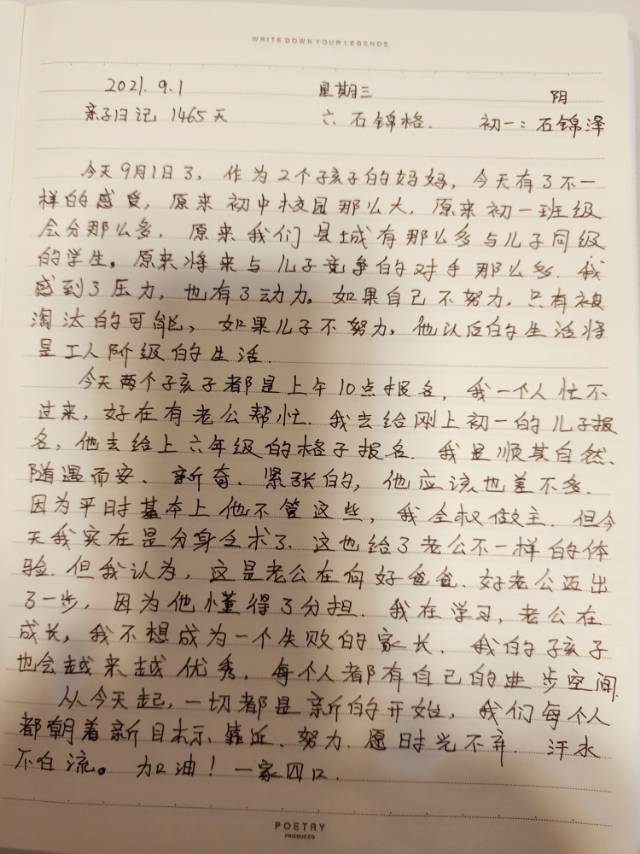 WRITE DOWN YOUR LEGENDS
2021.9.1 星期三 阴
亲子日记 1465天 六:石锦格. 初一:石锦泽
今天9月1日了,作为2个孩子的妈妈,今天有了不一
样的感觉,原来初中校园那么大,原来初一班级
会分那么多,原来我们县城有那么多与儿子同级
的学生。原来将来与儿子竞争的对手那么多.我
感到了压力,也有了动力。如果自己不努力,只有被
淘汰的可能,如果儿子不努力,他以后的生活将
是工人阶级的生活.
今天两个孩子都是上午10点报名,我一个人忙不
过来,好在有老公帮忙.我去给刚上初一的儿子报
名,他去给上六年级的格子报名.我是顺其自然、
随遇而安、新奇、紧张的,他应该也差不多.
因为平时基本上他不管这些,我全权做主.但今
天我实在是分身乏术了.这也给了老公不一样的体
验.但我认为,这是老公在向好爸爸、好老公迈出
了一步,因为他懂得了分担.我在学习,老公在
成长,我不想成为一个失败的家长.我的孩子
也会越来越优秀,每个人都有自己的进步空间.
从今天起,一切都是新的开始,我们每个人
都朝着新目标、靠近、努力.愿时光不弃.汗水
不白流。加油!一家四口.
POETRY
PRODUCER